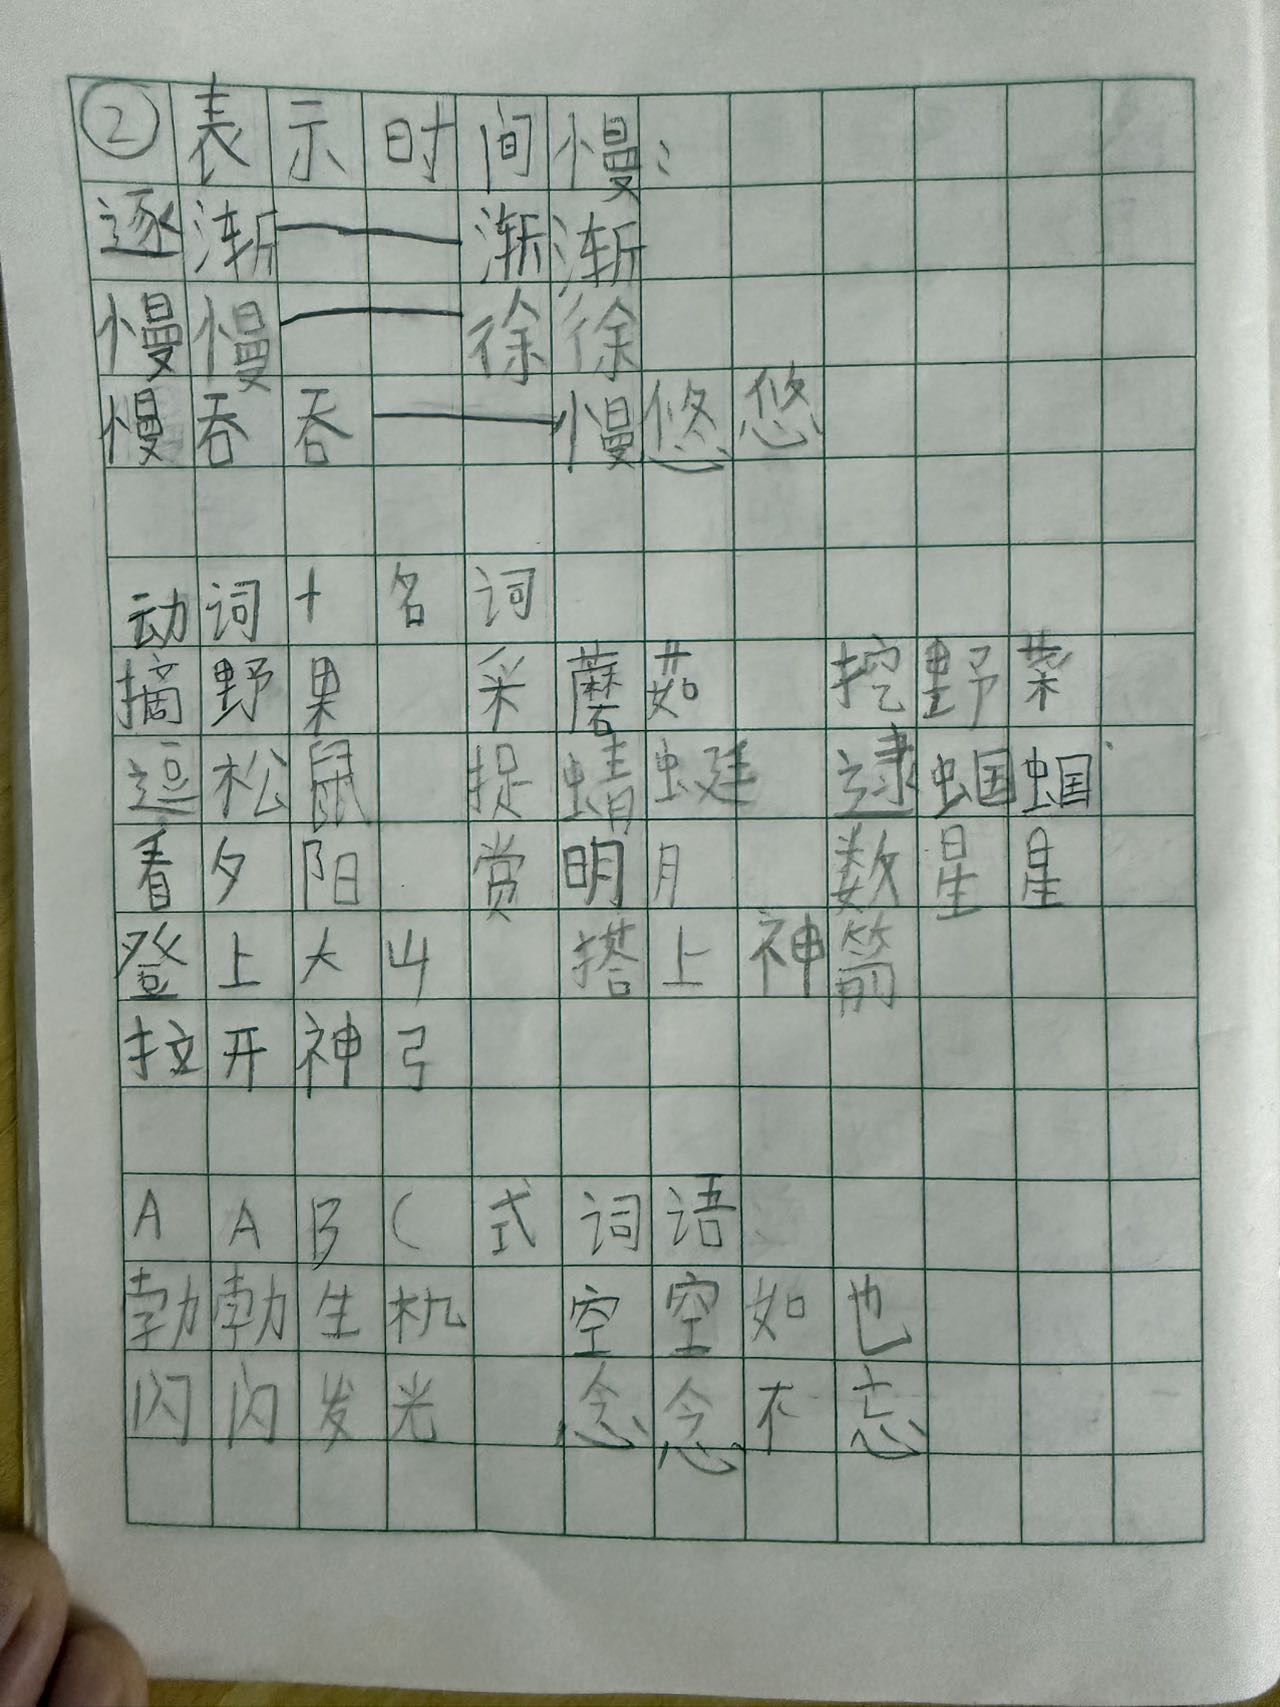 ②表示时间慢：
逐渐——渐渐
慢慢——徐徐
慢吞吞——慢悠悠
动词+名词
摘野果 采蘑菇 挖野菜
逗松鼠 捉蜻蜓 逮蝈蝈
看夕阳 赏明月 数星星
登上大山 搭上神箭
拉开神弓
AABC式词语
勃勃生机 空空如也
闪闪发光 念念不忘